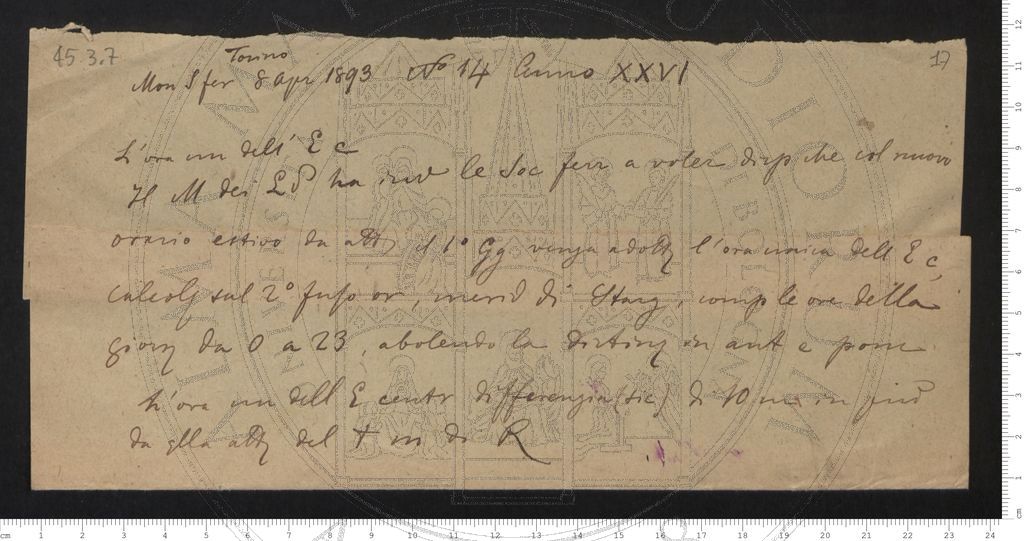 45.3.7
17
Torino
Mon S fer 8 Apr 1893 No 14 Anno XXVI
L'ora un dell' E c
Il M dei LP ha invo le Soc ferr a voler disp che col nuovo
orario estivo da attz il 1° Gg venga adottz l'ora unica dell E c,
calcolz sul 2° fuso or, merid di Starg, comp le ore della
giorn da 0 a 23, abolendo la distinz in ant e pom
L'ora un dell E centr differenzia (sic) di 10 m in più
da qlla attz del t m di R